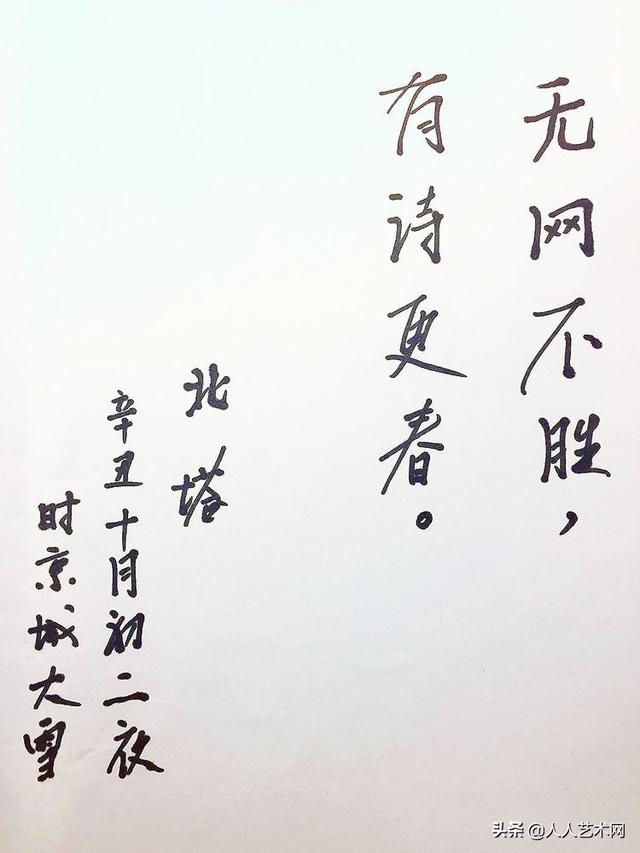 无网不胜，
有诗更春。
北塔
辛丑十月初二夜
时京城大雪
头条@人人艺术网